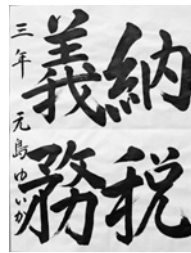 納税
義務
三年 元島ゆいか